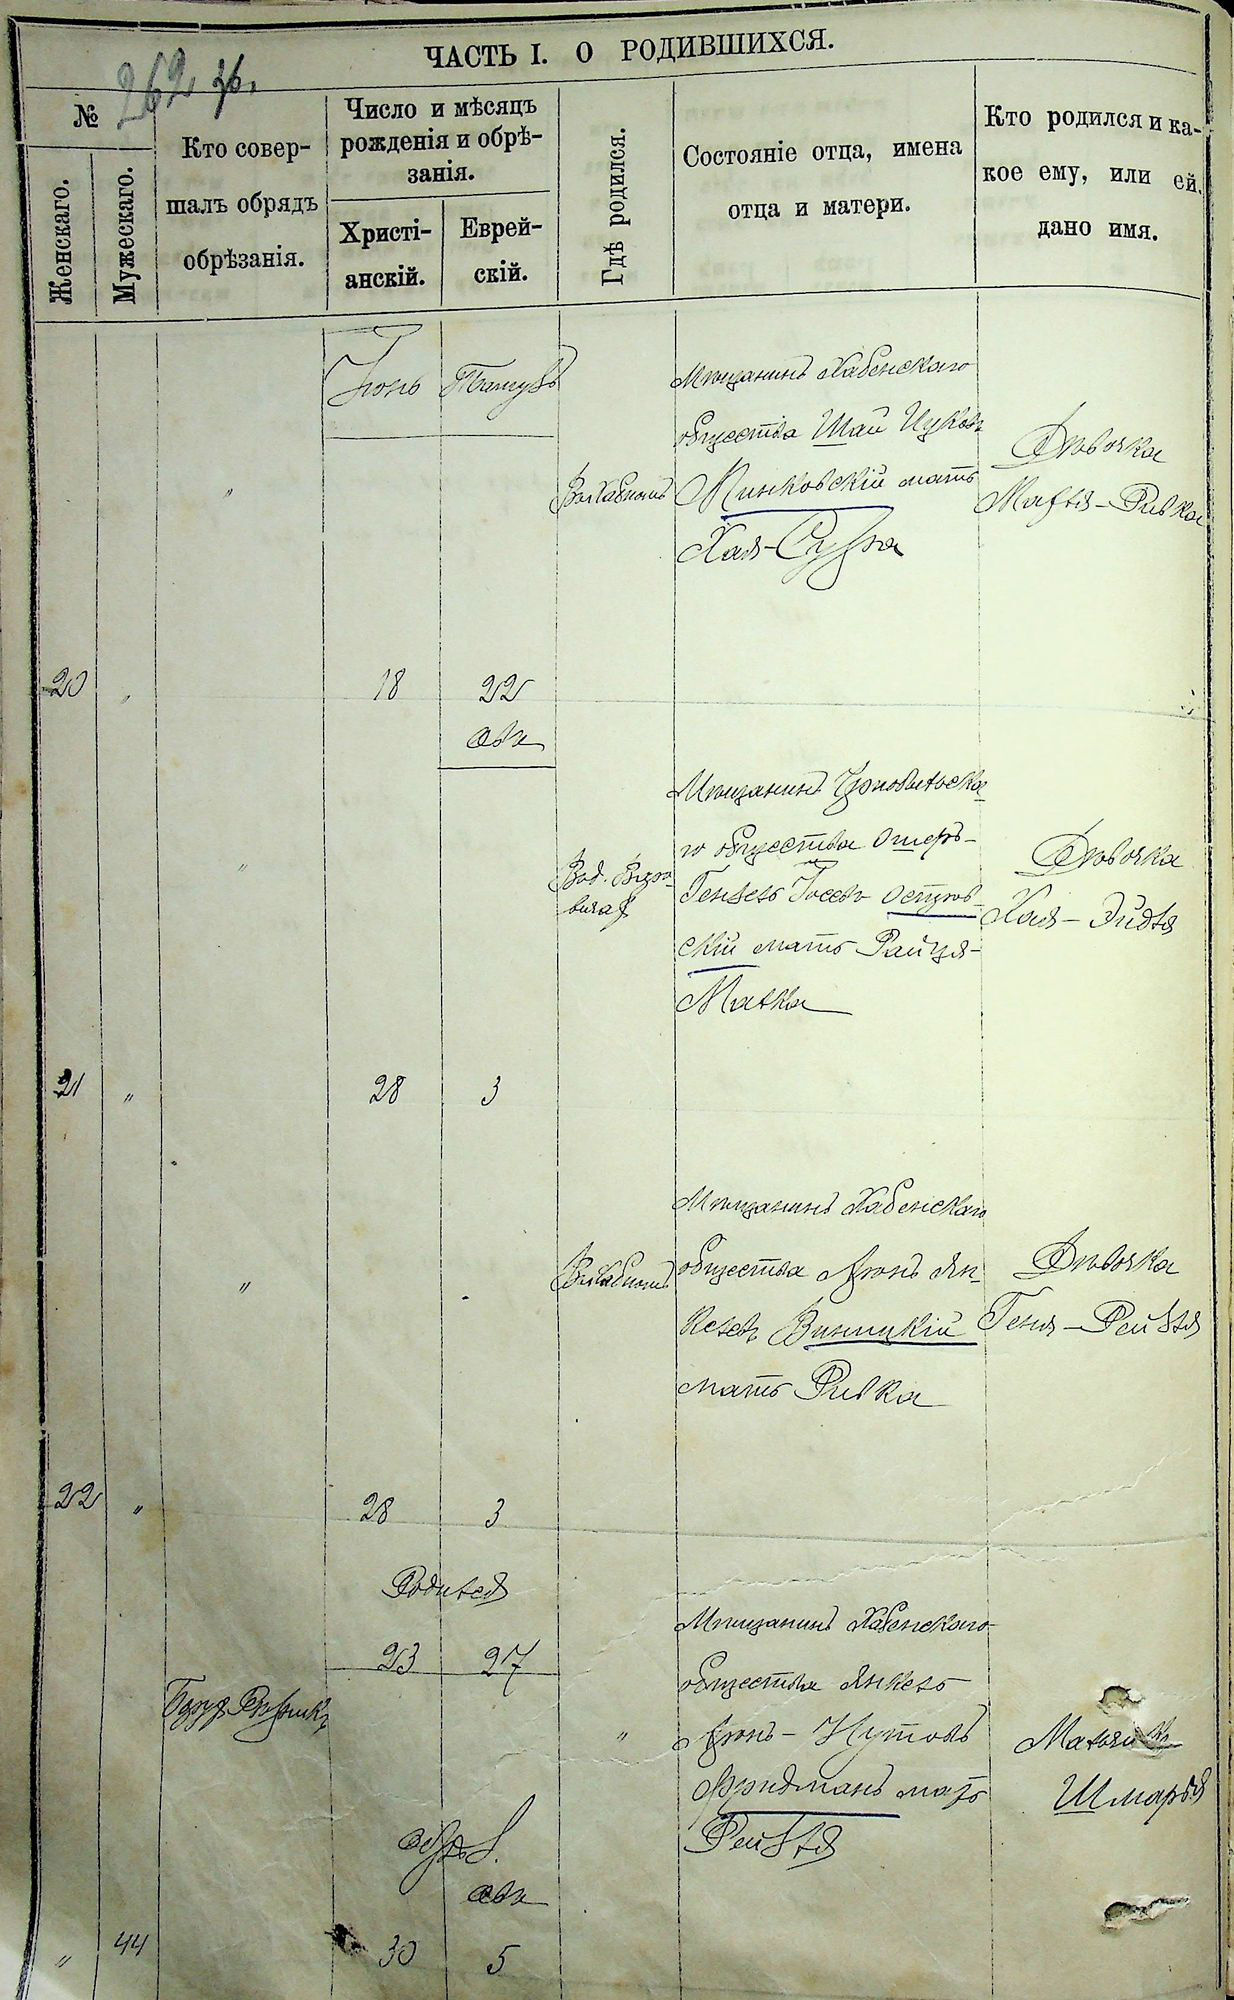 262 зв.
ЧАСТЬ I. О РОДИВШИХСЯ.
№
Женскаго.
Мужескаго.
Кто совер-
шалъ обрядъ
обрѣзанія.
Число и мѣсяцъ
рожденія и обрѣ-
занія.
Христі-
анскій.
Еврей-
скій.
Гдѣ родился.
Состояніе отца, имена
отца и матери.
Кто родился и ка-
кое ему, или ей,
дано имя.
Іюнь
Тамузъ
"
Мѣщанинъ Хабенскаго
общества Шай Ицковъ
Минковскій мать
Хая-Сура
Дѣвочка
Малья-Ривка
20
"
18
22
Авъ
"
Мѣщанинъ Чернобыльска-
го общества Ошеръ-
Гензель Іосевъ Остров-
скій мать Райця-
Малка
Дѣвочка
Хая-Эйдля
21
"
28
3
"
Мѣщанинъ Хабенскаго
общества Аронъ Ян-
келевъ Винницкій
мать Ривка
Дѣвочка
Геня-Рейзля
22
"
28
3
Родился
23
27
"
Мѣщанинъ Хабенскаго
общества Янкель
Аронъ-Нутовъ
Фридманъ мать
Рейзля
Мальчикъ
Шмарья
обрѣз.
Авъ
"
44
30
5